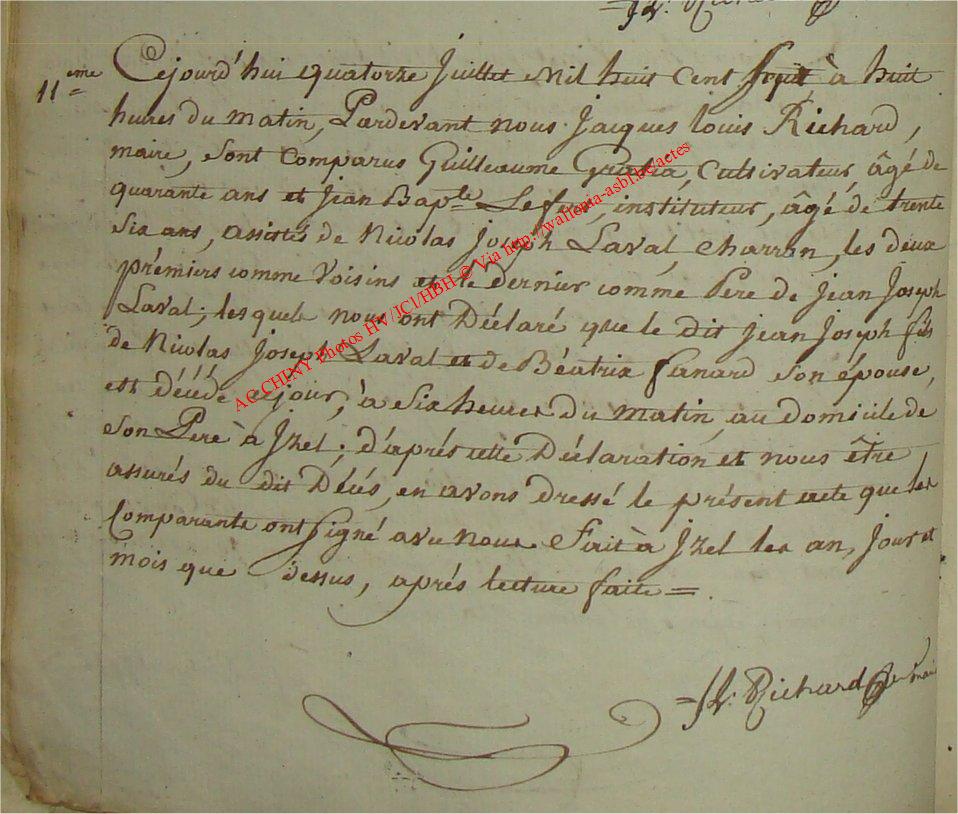 J L. Richard
11eme Cejourd'hui quatorze Juillet mil huit cent sept, à huit
heures du matin, Pardevant nous Jacques Louis Richard,
maire, sont comparus Guilleaume, Cultivateur, âgé de
quarante ans et Jean Baptte Lefevre, instituteur, âgé de trente
Six ans, assistés de Nicolas Joseph Laval, charron, les deux
prémiers comme Voisins et le dernier comme Pere de Jean Joseph
Laval; lesquels nous ont Déclaré que le dit Jean Joseph fils
de Nicolas Joseph Laval et de Béatrix fanard son épouse,
est décédé cejour, à Six heures du matin, au domicile de
son Pere à Jzel; d'aprés cette Déclaration et nous être
assurés du dit Décés, en avons dressé le présent acte que les
Comparants ont Signé avec nous Fait à Jzel les an, Jour et
mois que dessus, aprés lecture faite =
JL. Richard
AC CHINY Photos HV/JCl/HBH © Via http://wallonia-asbl.be/actes